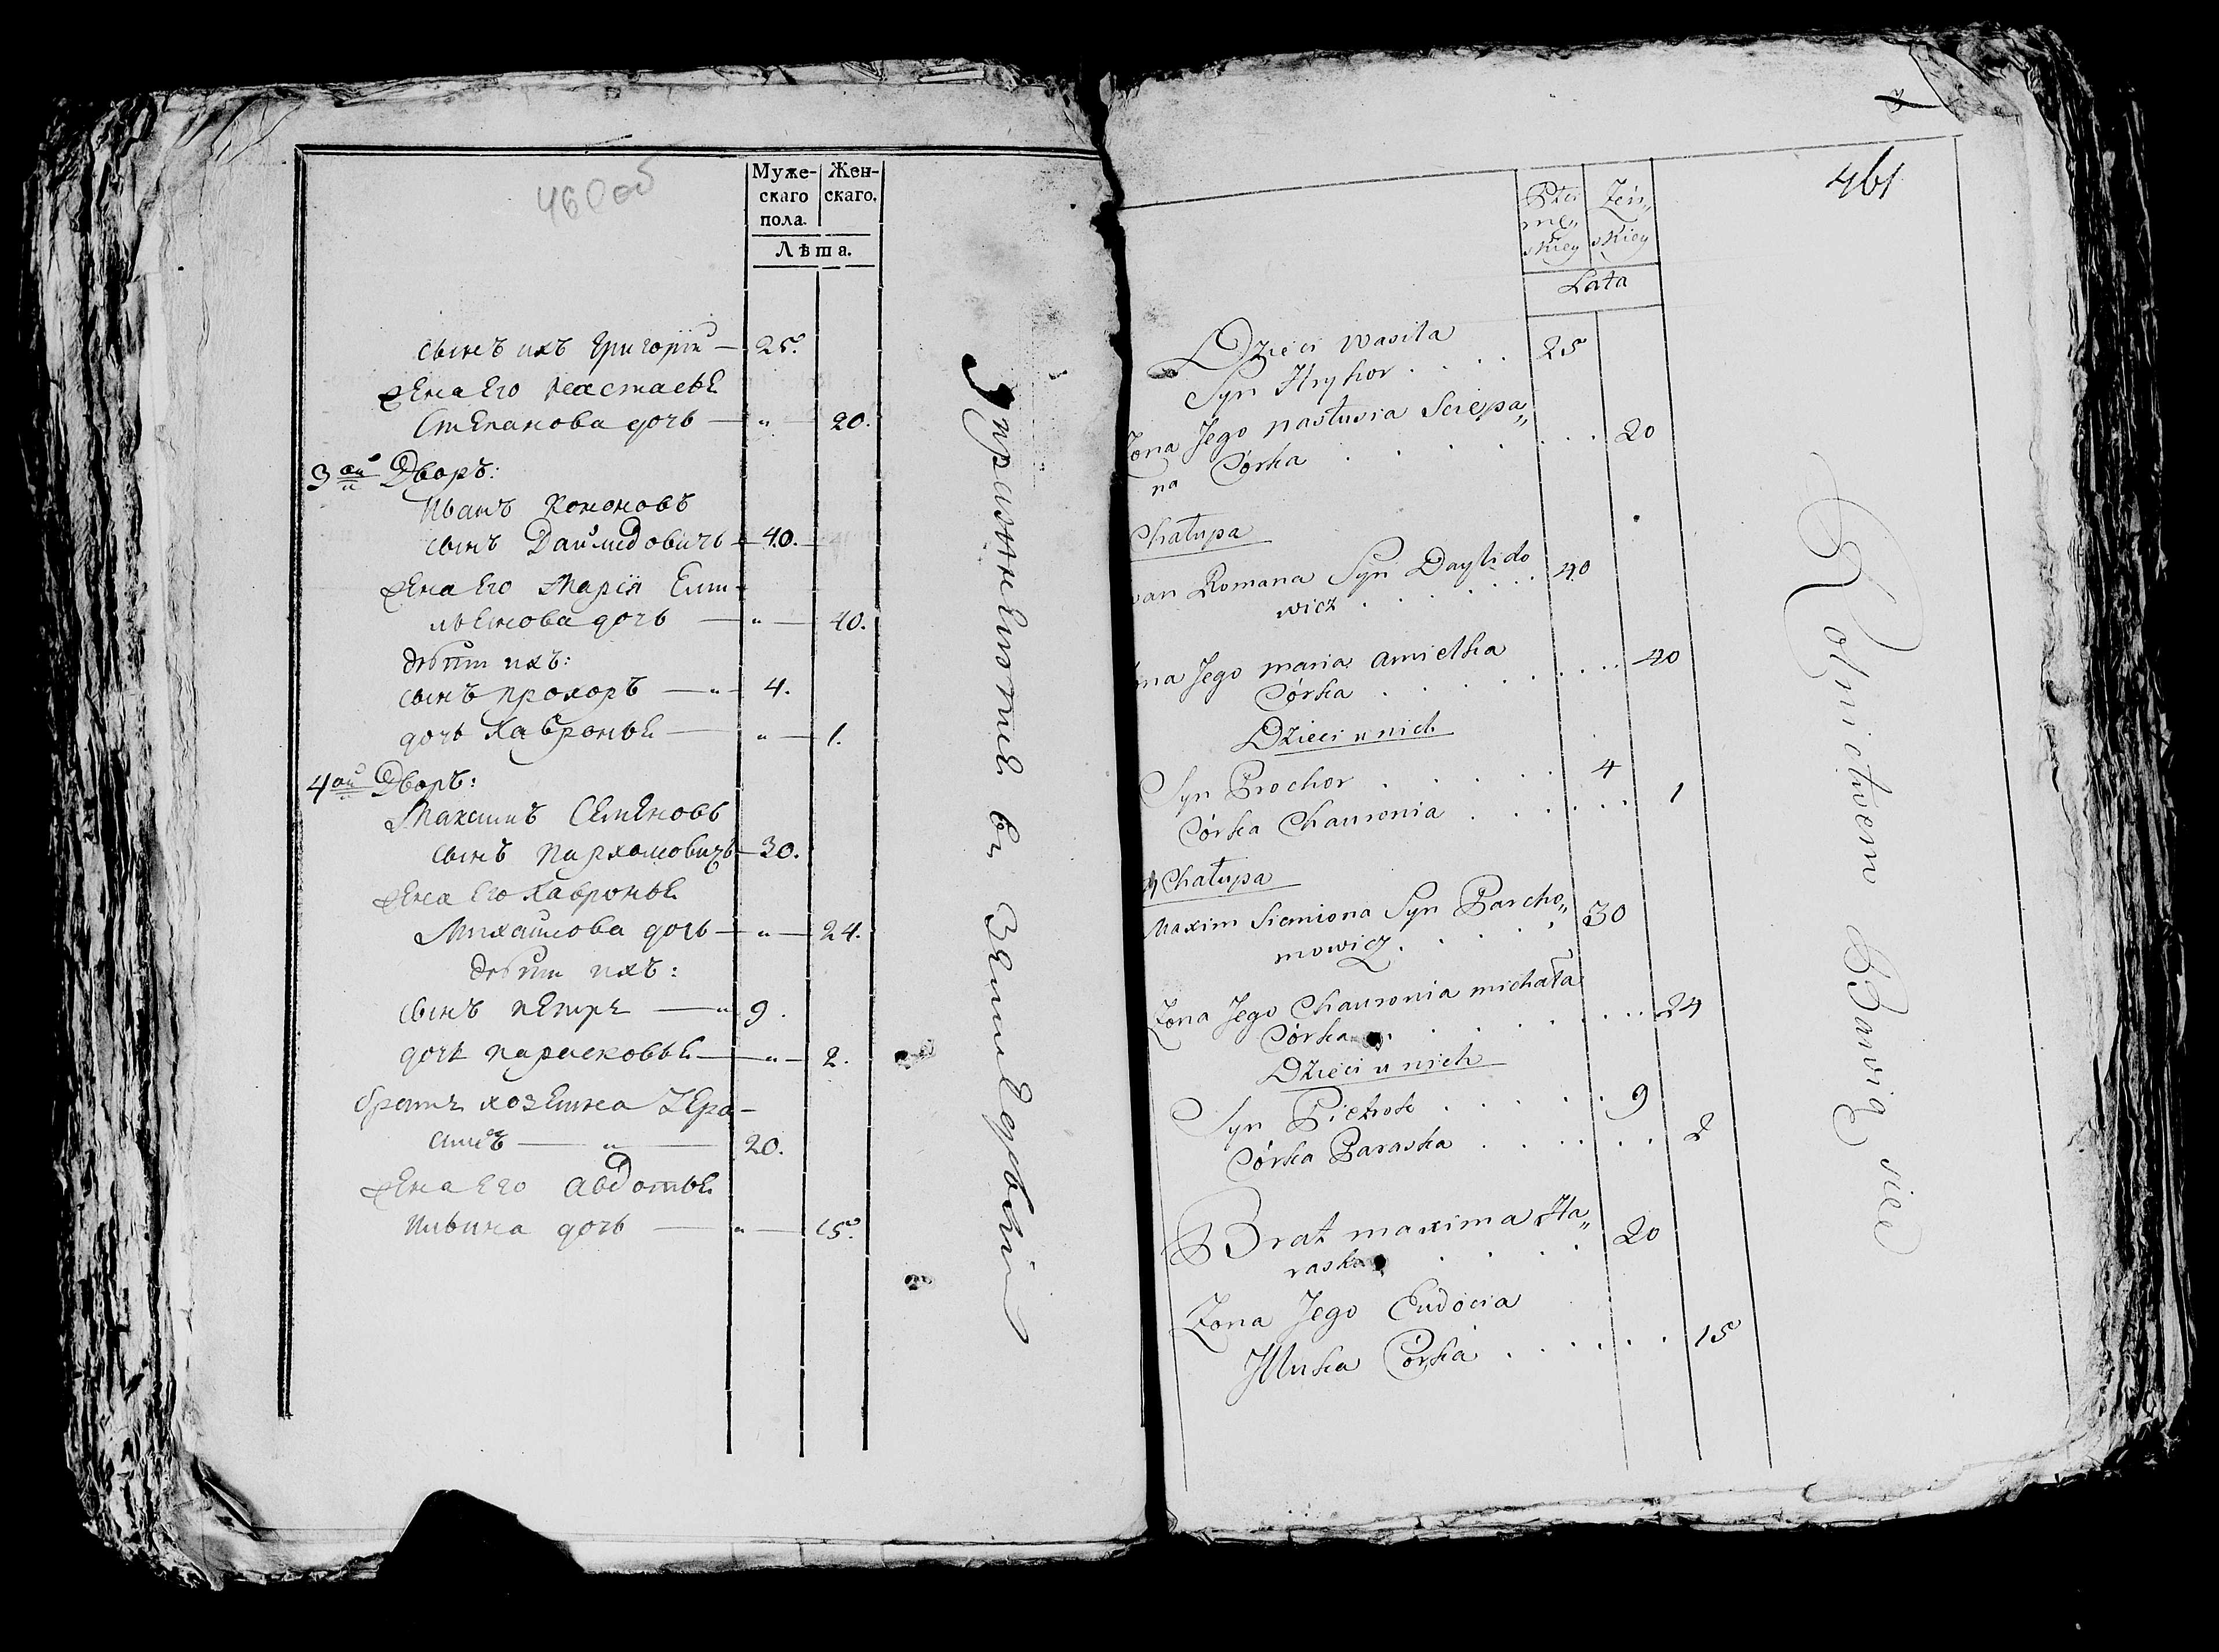 460 об
Муже-
скаго
пола.
Жен-
скаго.
Лѣта.
сынъ ихъ Григорій — 25.
жена Его настасье
Степанова дочь — „ — 20.
3ой Дворъ:
Иванъ
сынъ Дайлидовичь — 40.
жена Его Марія Емел-
ьенова дочь — „ — 40.
дѣти ихъ:
сынъ прохоръ — „ — 4.
дочь Хавронье — „ — 1.
4ой Дворъ:
Максимъ Семеновъ
сынъ пархомовичъ — 30.
жена Его Хавронье
Михайлова дочь — „ — 24.
дѣти ихъ:
сынъ петръ — „ 9.
дочь парасковье — „ — 2.
братъ хозеина Гера-
симъ — „ — 20.
жена Его Авдотье
Ильина дочь — „ — 15.
Упражнение въ Земледелии
461
Płci
męs„
skiey
Żeń„
skiey
Lata
Dzieci Wasila
Syn Hryhor . . . . 25
Żona Jego nastusia Sciepa„
na Córka . . . . . . . 20
Chałupa
wan Romana Syn Daylido
wicz . . . . . . 40
na Jego maria amielka
Córka . . . . . . . 40
Dzieci u nich
Syn Prochor . . . . . 4
Córka Chauronia . . . . . . 1
4 Chałupa
Maxim Siemiona Syn Parcho„
mowicz . . . . . 30
Żona Jego Chauronia michała
Córka . . . . . . . 24
Dzieci u nich
Syn Pietrok . . . . . 9
Córka Paraska . . . . . . 2
Brat maxima Ha„
raska . . . . 20
Żona Jego Eudocia
Jlluka Córka . . . . . . 15
Rolnictwem Bawią sie